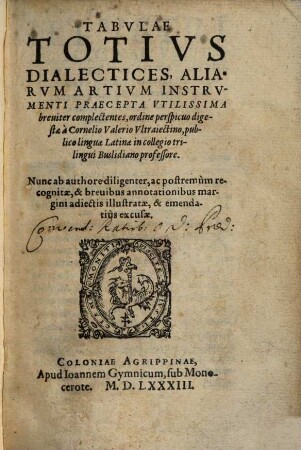 TABVLAE
TOTIVS
DIALECTICES, ALIA-
RVM ARTIVM INSTRV-
MENTI PRAECEPTA VTILISSIMA
breuiter complectentes, ordine perspicuo dige-
stæ à Cornelio Valerio Vltraiectino, pub-
lico linguæ Latinæ in collegio tri-
lingui Buslidiano professore.
Nunc ab authore diligenter, ac postremùm re-
cognitæ, & breuibus annotationibus mar-
gini adiectis illustratæ, & emenda-
tiùs excusæ.
COLONIAE AGRIPPINAE,
Apud Ioannem Gymnicum, sub Mono-
cerote. M. D. LXXXIII.